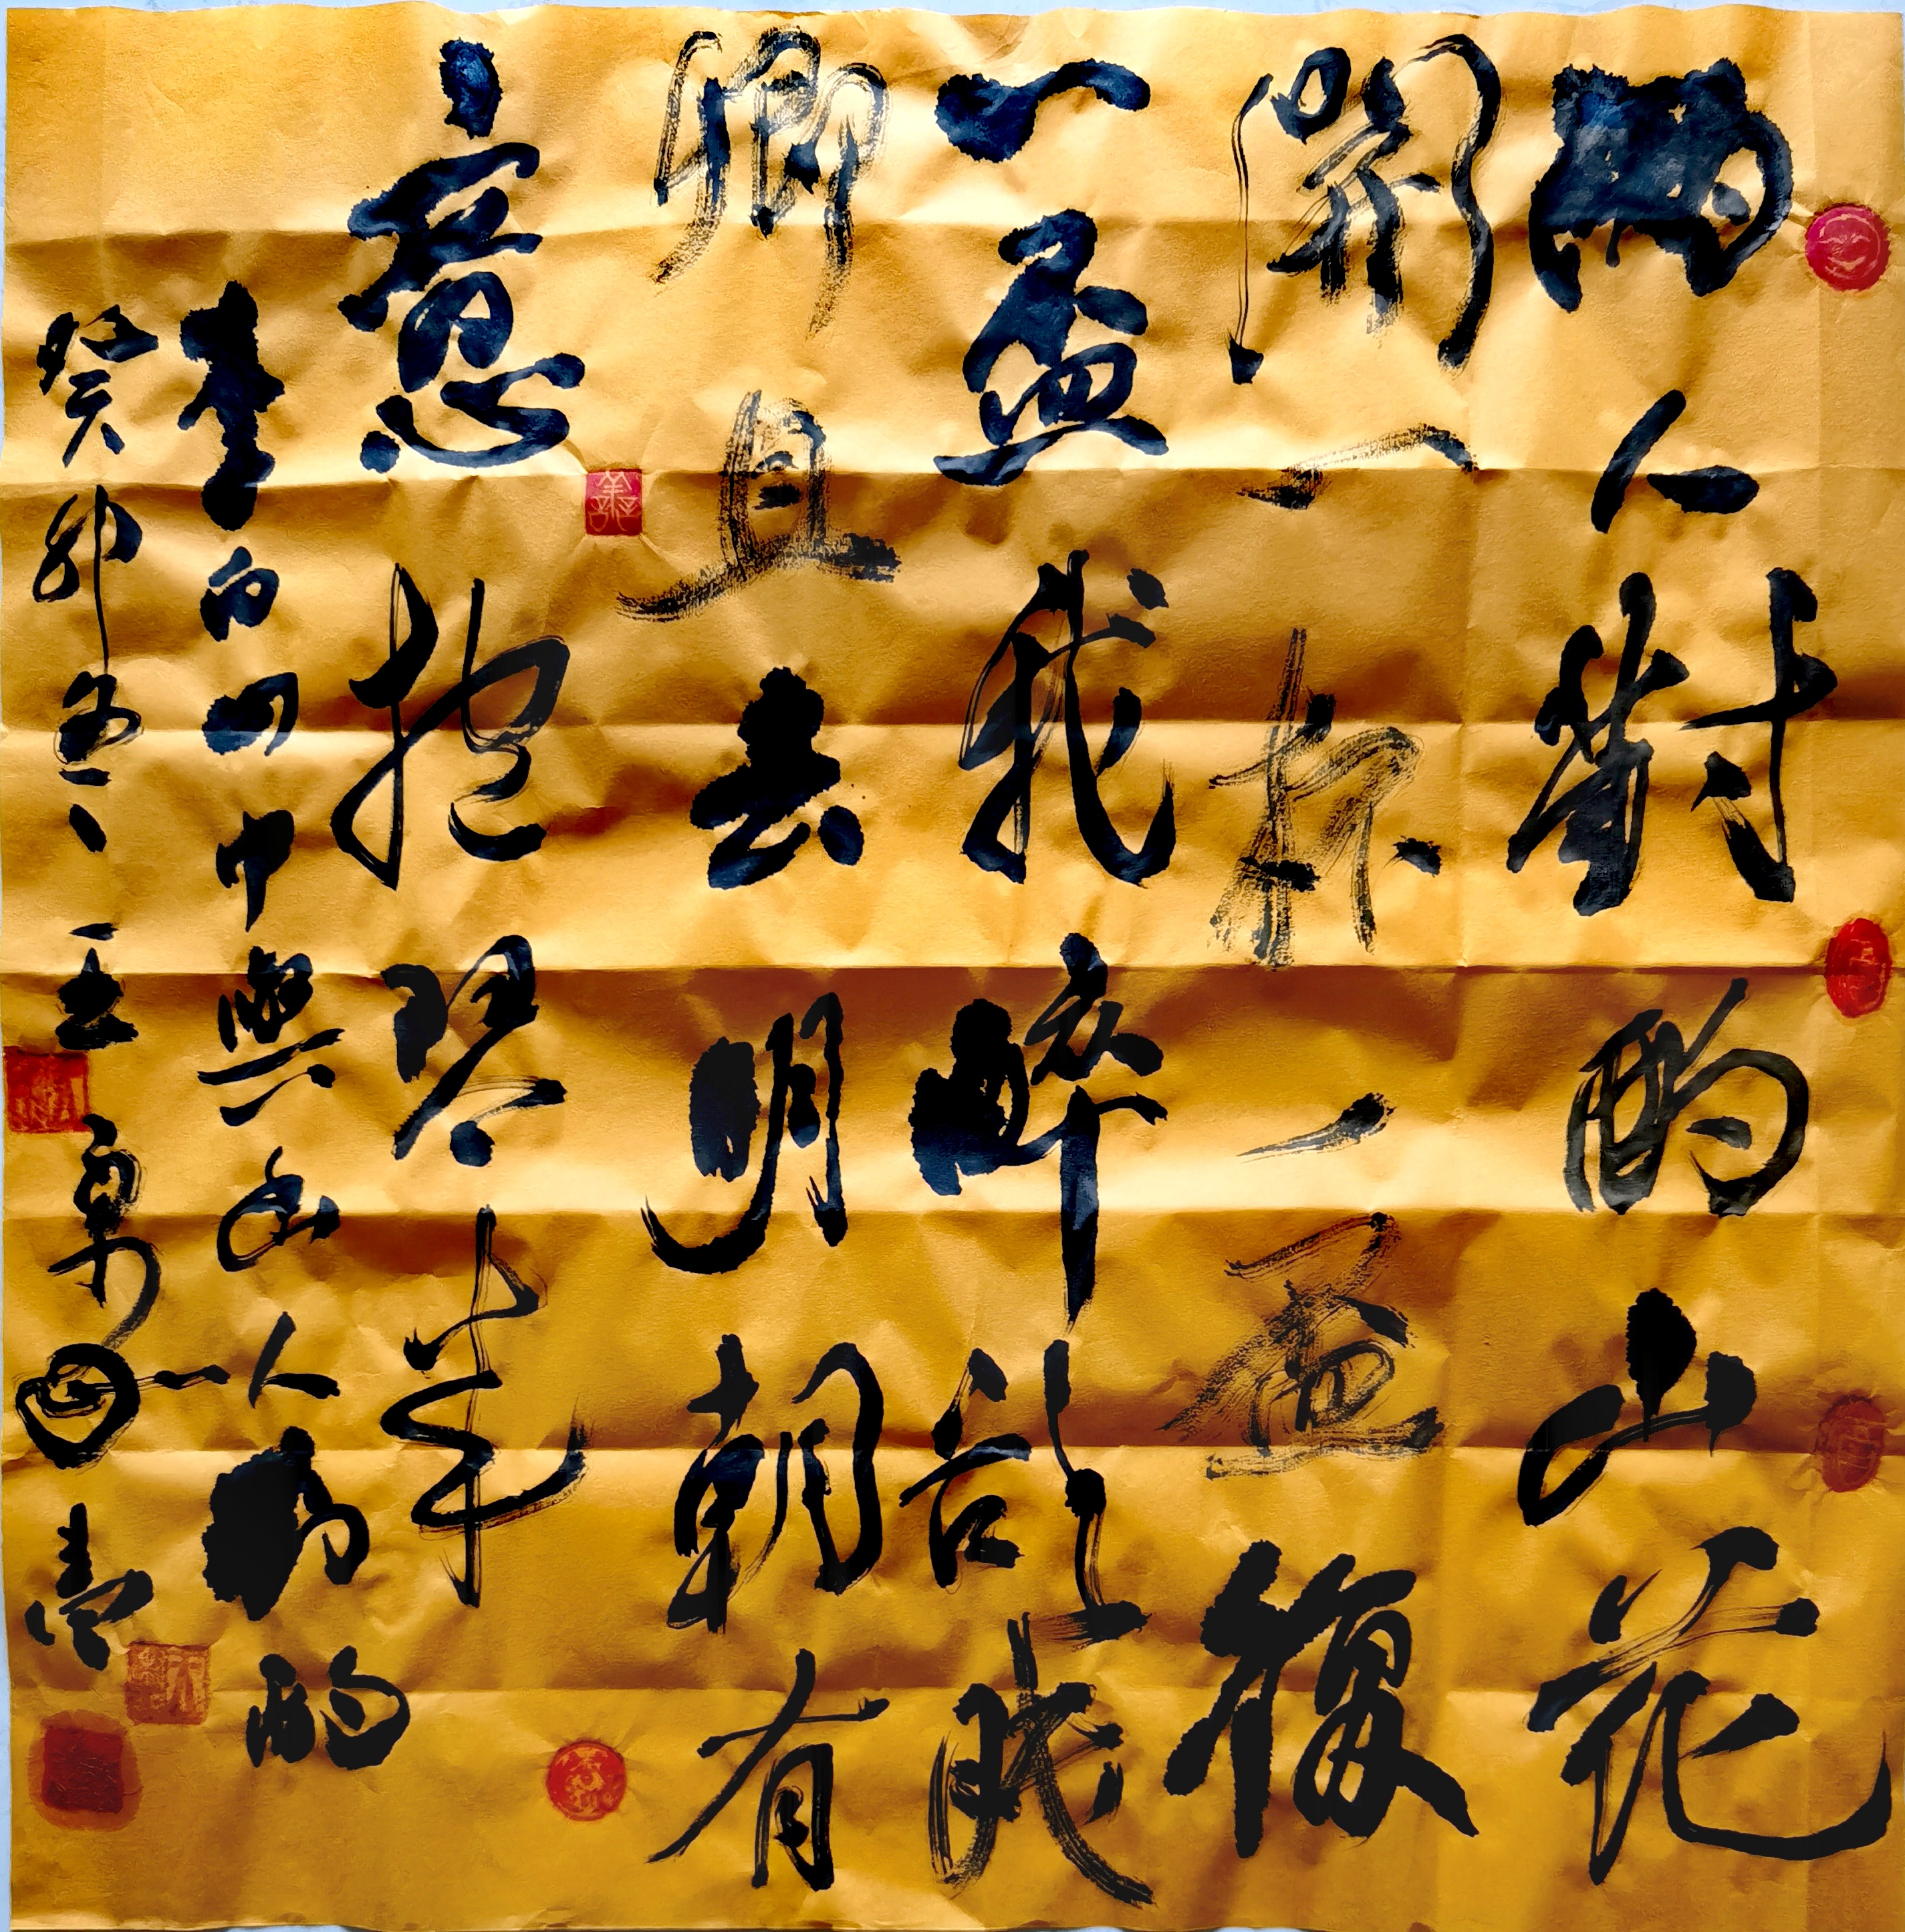 兩人對酌山花
開一杯一盃復
一盃我醉欲眠
卿且去明朝有
意抱琴来
李白山中與幽人對酌
癸卯冬王書